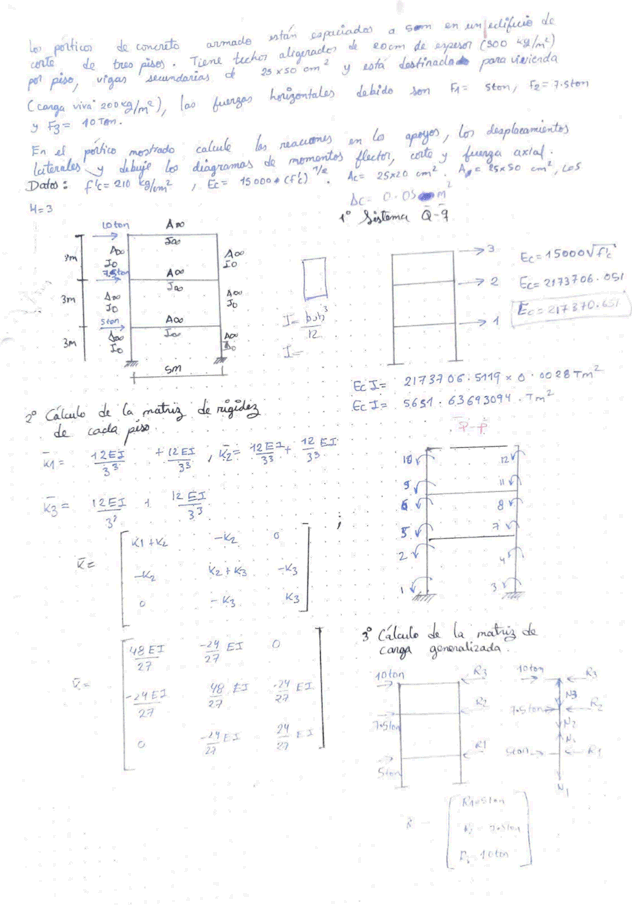 Los pórticos de concreto armado están espaciados a 5.0m en un edificio de
corte de tres pisos. Tiene techos aligerados de 20cm de espesor (300 kg/m²)
por piso, vigas secundarias de 25x50 cm² y está destinado para vivienda
(carga viva 200kg/m²), las fuerzas horizontales debido son F1= 5ton, F2= 7.5ton
y F3= 10Ton.
En el pórtico mostrado calcule las reacciones en los apoyos, los desplazamientos
laterales y dibuje los diagramas de momentos flector, corte y fuerza axial.
Datos: f'c= 210 kg/cm², Ec= 15000*(f'c)^1/2. Ac= 25x20 cm². 25x50 cm², los
H=3
Ac= 0.05 m²
1° Sistema Q-q
10ton A∞
I∞
3m A∞ A∞
I0 I0
7.5ton A∞
I∞
3m A∞ A∞
I0 I0
5ton A∞
I∞
3m A∞ A∞
I0
5m
I= b.h³
12
I=
3
2
1
Ec=15000√f'c
Ec=2173706.051
Ec=217370.651
EcI= 2173706.5119 x 0.0028Tm²
EcI= 5651.63693094.Tm²
2° Cálculo de la matriz de rigidez
de cada piso.
k1= 12EI/3³ +12EI/3³, k2= 12EI/3³ + 12EI/3³
k3= 12EI/3³ + 12EI/3³
;
P-p
10 12
9 11
6 8
5 7
2 4
1 3
K= K1+K2 -K2 0
-K2 K2+K3 -K3
0 -K3 K3
K= 48EI/27 -24/27 EI 0
-24EI/27 48/27 EI -24/27 EI
0 -24/27 EI 24/27 EI
3° Cálculo de la matriz de
carga generalizada.
10ton R3 10ton R3
N3
7.5ton R2 7.5ton R2
N2
N1
5ton R1 5ton R1
N1